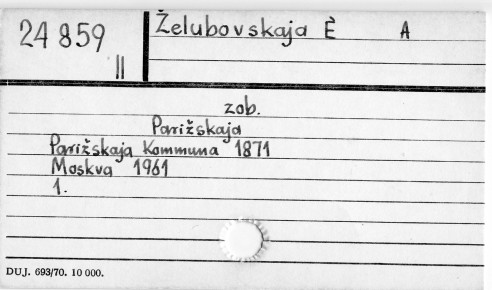 24 859
II
Želubovskaja Ė A
zob.
Parižskaja
Parižskaja Kommuna 1871
Moskva 1961
1.
DUJ. 693/70. 10 000.